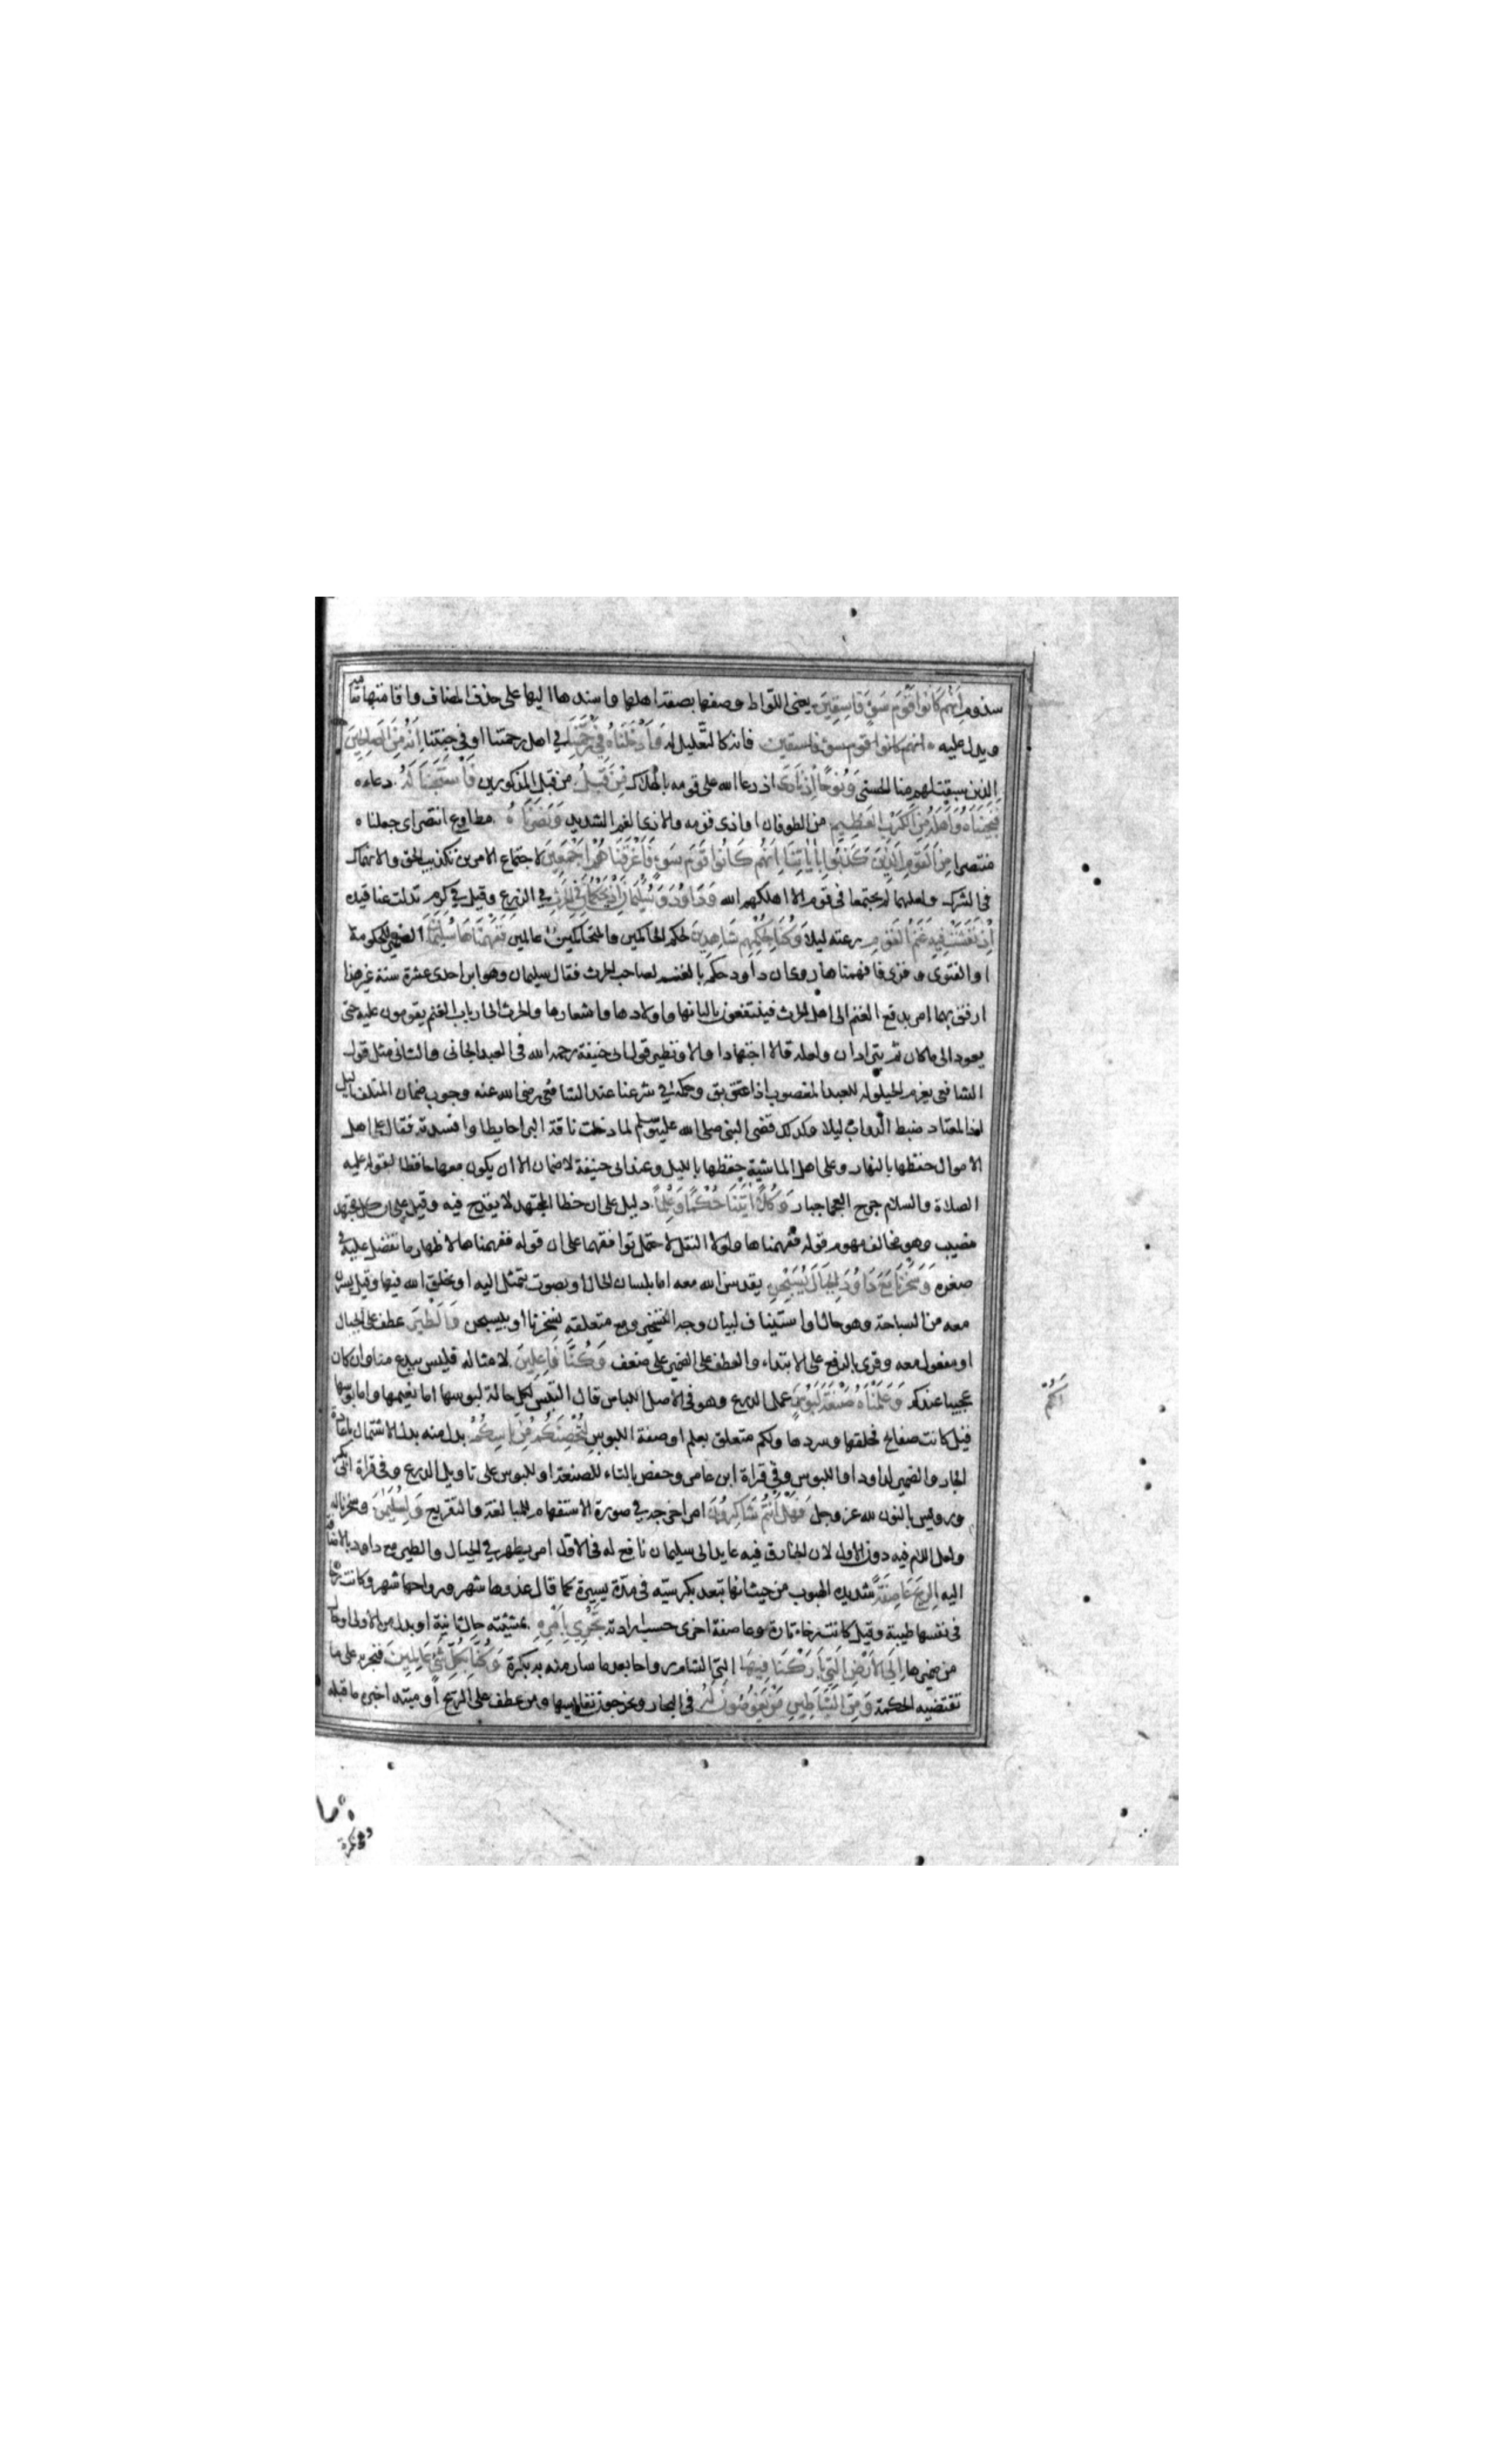 سذوم إنهم كانوا قوم سوء فاسقين يعني اللواط وصفها بصفة اهلها واسندها اليها على حذف المضاف واقامتها مقامه
ويدل عليه انهم كانوا قوم سوء فاسقين فانه كالتعليل له وَأَدْخَلْنَاهُ فِي رَحْمَتِنَا في اهل رحمتنا او في جنتنا إِنَّهُ مِنَ الصَّالِحِينَ
الذين سبقت لهم منا الحسنى وَنُوحًا إِذْ نَادَى اذ دعا الله على قومه بالهلاك مِن قَبْلُ من قبل المذكورين فَاسْتَجَبْنَا لَهُ دعاءه
فَنَجَّيْنَاهُ وَأَهْلَهُ مِنَ الْكَرْبِ الْعَظِيمِ من الطوفان او اذى قومه والاذى الغم الشديد وَنَصَرْنَاهُ مطاوع انتصر اى جعلناه
منتصرا مِنَ الْقَوْمِ الَّذِينَ كَذَّبُوا بِآيَاتِنَا إِنَّهُمْ كَانُوا قَوْمَ سَوْءٍ فَأَغْرَقْنَاهُمْ أَجْمَعِينَ لاجتماع الامرين تكذيب الحق والانهماك
فى الشرك ولعلهما لم يجتمعا فى قوم الا اهلكهم الله وَدَاوُدَ وَسُلَيْمَانَ إِذْ يَحْكُمَانِ فِي الْحَرْثِ في الزرع وقيل في كرم تدلت عناقيده
إِذْ نَفَشَتْ فِيهِ غَنَمُ الْقَوْمِ رعته ليلا وَكُنَّا لِحُكْمِهِمْ شَاهِدِينَ لحكم الحاكمين والمتحاكمين عالمين فَفَهَّمْنَاهَا سُلَيْمَانَ الضمير للحكومة
او الفتوى وقرئ فافهمناها روى ان داود حكم بالغنم لصاحب الحرث فقال سليمان وهو ابن احدى عشرة سنة غير هذا
ارفق بهما امر بدفع الغنم الى اهل الحرث فينتفعون بالبانها واولادها واشعارها والحرث الى ارباب الغنم يقومون عليه حتى
يعود الى ما كان ثم يترادان ولعله قالا اجتهادا والاول نظير قول ابى حنيفة رحمه الله فى العبد الجانى والثانى مثل قول
الشافعى بغرم الحيلولة للعبد المغصوب اذا اعتق بق وحكمه في شرعنا عند الشافعى رضى الله عنه وجوب ضمان المتلف بالليل
اذ المعتاد ضبط الدواب ليلا وكذلك قضى النبى صلى الله عليه وسلم لما دخلت ناقة البرا حايطا وافسدته فقال على اهل
الاموال حفظها بالنهار وعلى اهل الماشية حفظها بالليل وعند ابى حنيفة لا ضمان الا ان يكون معها حافظا لقوله عليه
الصلاة والسلام جرح العجما جبار وَكُلًّا آتَيْنَا حُكْمًا وَعِلْمًا دليل على ان خطا المجتهد لا يقدح فيه وقيل على ان كل مجتهد
مصيب وهو مخالف مفهوم قوله ففهمناها ولولا النقل لاحتمل توافقهما على ان قوله ففهمناها لاظهار ما تفضل عليه في
صغره وَسَخَّرْنَا مَعَ دَاوُدَ الْجِبَالَ يُسَبِّحْنَ يقدسن الله معه اما بلسان الحال او بصوت يتمثل اليه او بخلق الله فيها وقيل يسرن
معه من السباحة وهو حال او استيناف لبيان وجه التسخير ومع متعلقة بسخرنا او بيسبحن وَالطَّيْرَ عطف على الجبال
او مفعول معه وقرئ بالرفع على الابتداء والعطف على الضمير على ضعف وَكُنَّا فَاعِلِينَ لامثاله فليس ببدع منا وان كان
عجيبا عندكم وَعَلَّمْنَاهُ صَنْعَةَ لَبُوسٍ عمل الدرع وهو فى الاصل اللباس قال البس لكل حالة لبوسها اما نعيمها واما بوسها
قيل كانت صفايح فحلقها وسردها ولكم متعلق بعلم او صفة اللبوس لِتُحْصِنَكُم مِّن بَأْسِكُمْ بدل منه بدل الاشتمال باعادة
الجار والضمير لداود او اللبوس وفي قراة ابن عامر وحفص بالتاء للصنعة او للبوس على تاويل الدرع وفى قراة ابى بكر
ورويس بالنون لله عز وجل فَهَلْ أَنتُمْ شَاكِرُونَ امر اخرجه في صورة الاستفهام للمبالغة والتقريع وَلِسُلَيْمَانَ وسخرنا له
ولعل اللام فيه دون الاول لان الخارق فيه عايد الى سليمان نافع له فى الاول امر يظهر في الجبال والطير مع داود بالاضافة
اليه الرِّيحَ عَاصِفَةً شديدة الهبوب من حيث انها تبعد بكرسيه فى مدة يسيرة كما قال غدوها شهر ورواحها شهر وكانت رخاء
فى نفسها طيبة وقيل كانت رخاء تارة وعاصفة اخرى حسب ارادته تَجْرِي بِأَمْرِهِ بمشيئته حال ثانية او بدل من الاولى او حال
من ضميرها إِلَى الْأَرْضِ الَّتِي بَارَكْنَا فِيهَا الى الشام رواحا بعد ما سار منه به بكرة وَكُنَّا بِكُلِّ شَيْءٍ عَالِمِينَ فنجريه على ما
تقتضيه الحكمة وَمِنَ الشَّيَاطِينِ مَن يَغُوصُونَ لَهُ فى البحار ويخرجون نفايسها ومن عطف على الريح او مبتدا خبره ما قبله
لَكُمْ